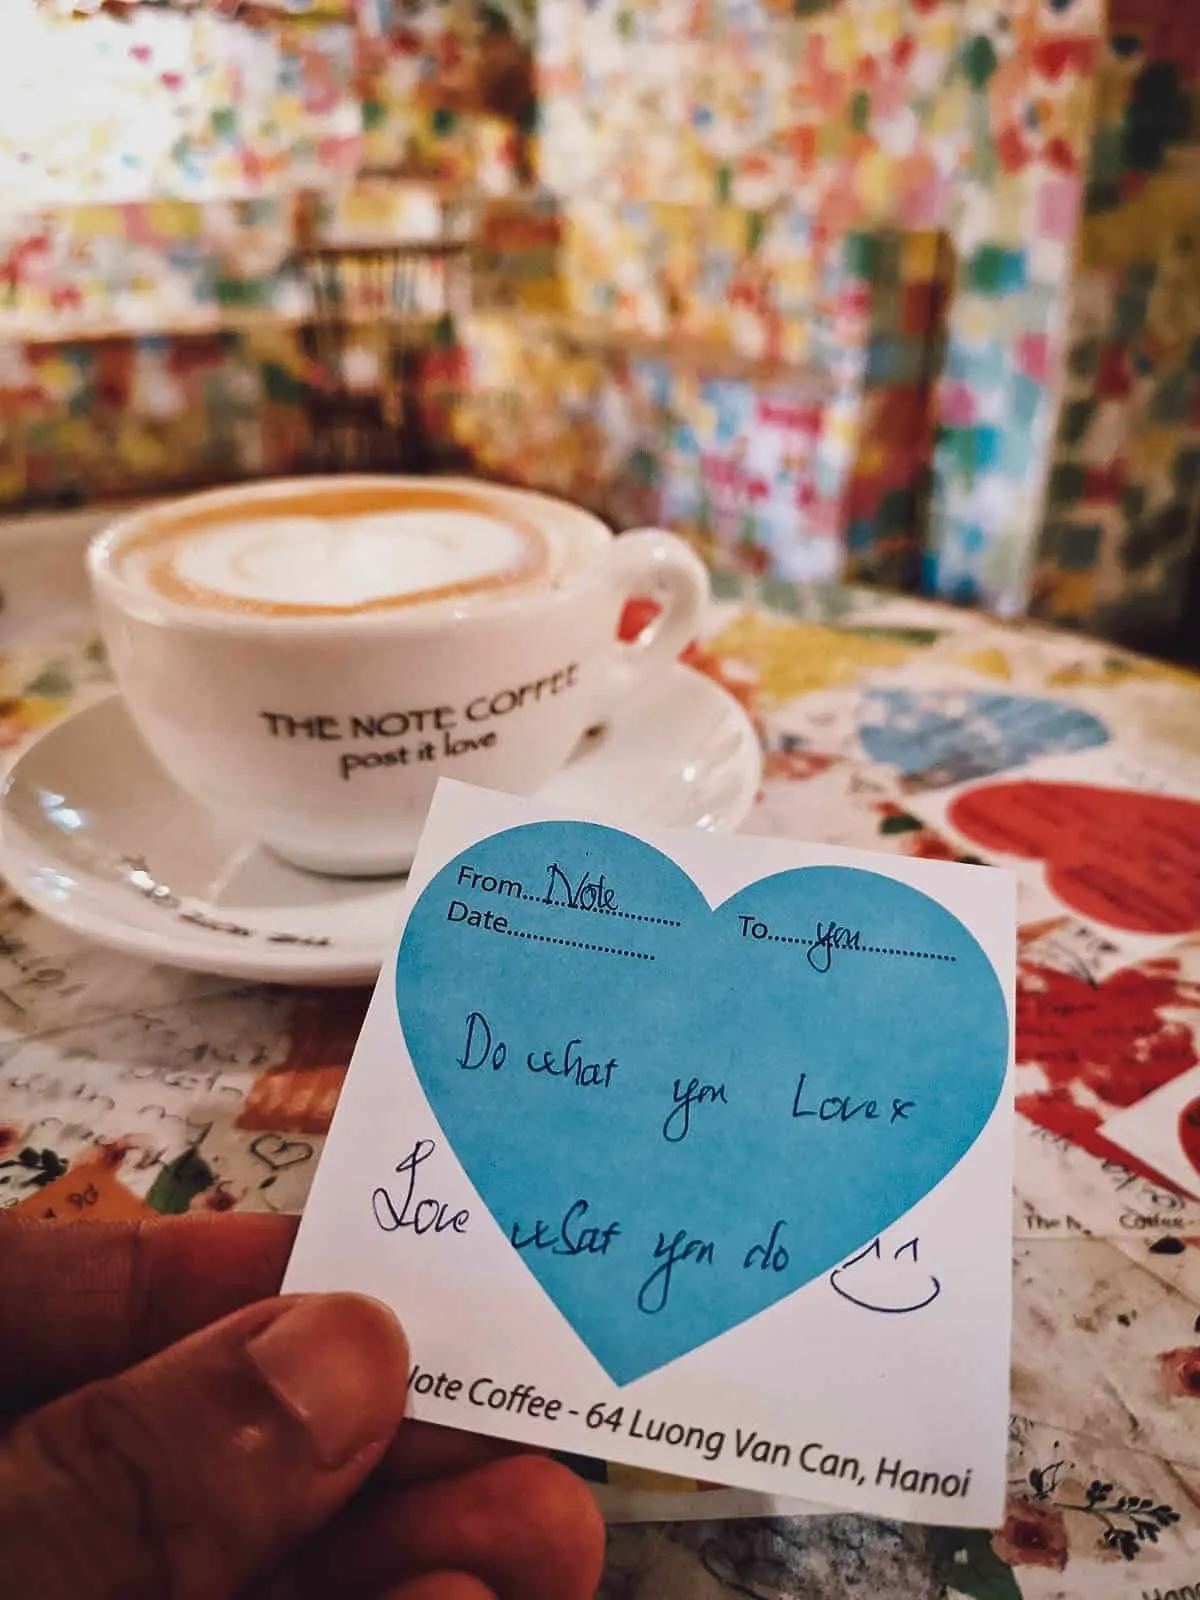 THE NOTE COFFEE
post it love
From....Note............
Date........................
To.......you...............
Do what you Love x
Love what you do
Note Coffee - 64 Luong Van Can, Hanoi